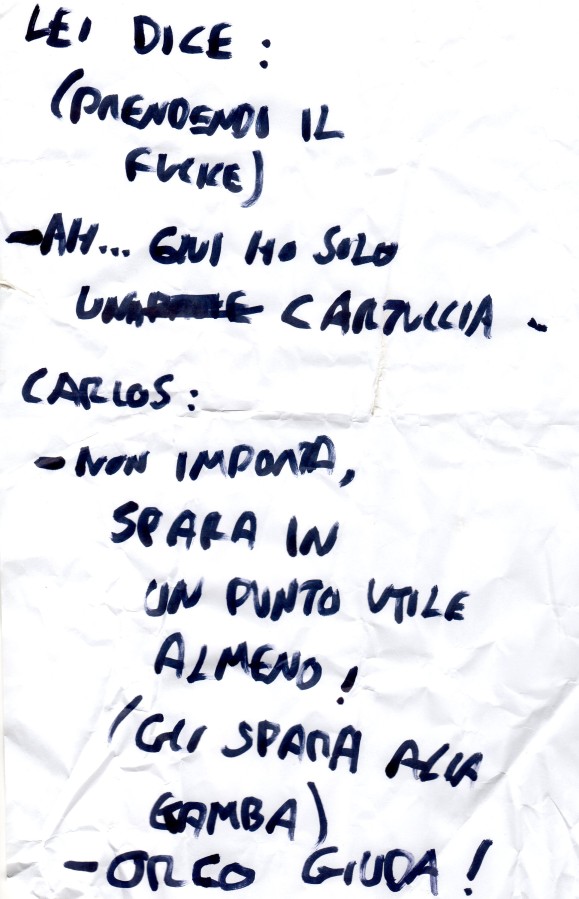 LEI DICE :
(PRENDENDI IL
FUCKE)
- AH... QUI HO SOLO
UNA CARTUCCIA -
CARLOS :
- NON IMPORTA,
SPARA IN
UN PUNTO UTILE
ALMENO !
(GLI SPARA ALLA
GAMBA)
- ORCO GIUDA !